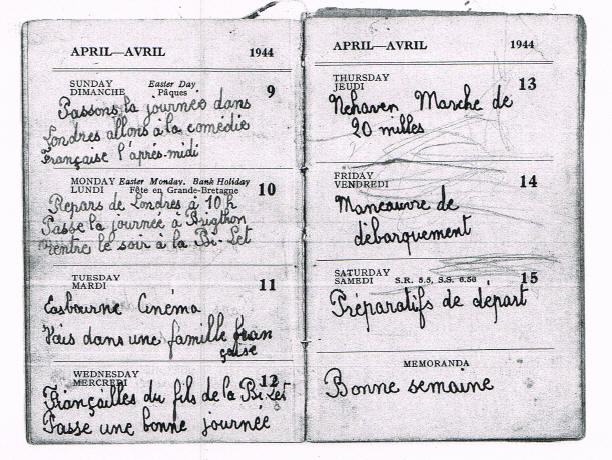 APRIL—AVRIL 1944
SUNDAY Easter Day 9
DIMANCHE Pâques
Passons la journée dans
Londres allons à la comédie
Française l'après-midi
MONDAY Easter Monday. Bank Holiday
LUNDI Fête en Grande-Bretagne 10
Repars de Londres à 10 h
Passe la journée à Brigthon
rentre le soir à la Bi-Let
TUESDAY 11
MARDI
Easbourne Cinéma
Vais dans une famille fran
çaise
WEDNESDAY 12
MERCREDI
Françailles du fils de la Bi-Let
Passe une bonne journée
APRIL—AVRIL 1944
THURSDAY 13
JEUDI
Nehaven Marche de
20 milles
FRIDAY 14
VENDREDI
Manœuvre de
débarquement
SATURDAY 15
SAMEDI S.R. 5.5, S.S. 6.56
Préparatifs de départ
MEMORANDA
Bonne semaine